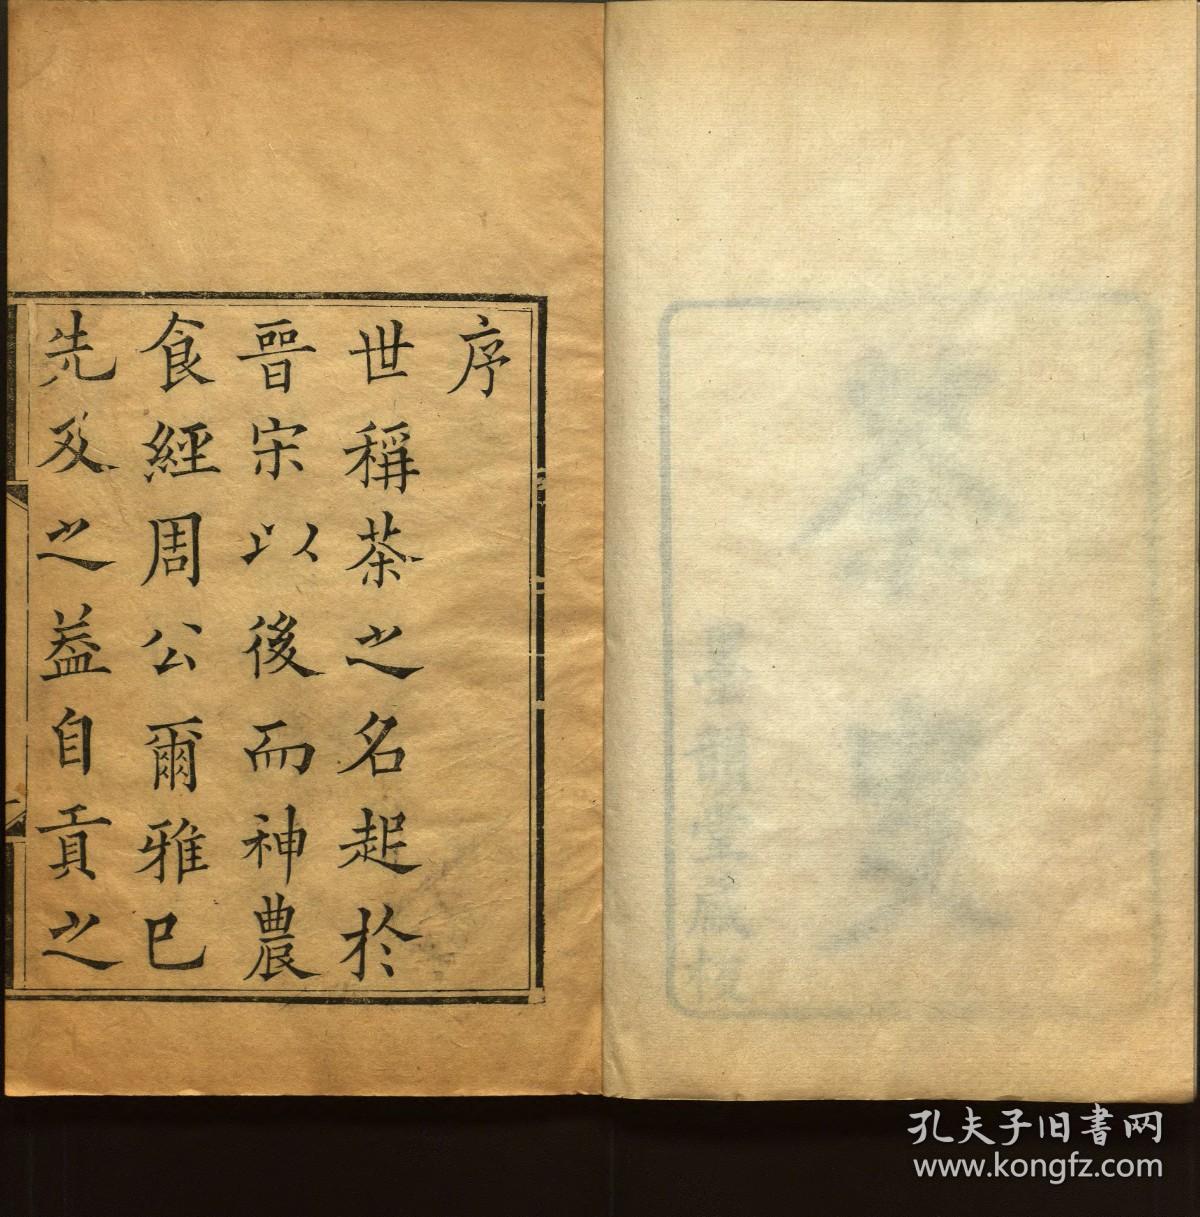 茶史
墨韻堂藏板
序
世稱茶之名起於
晉宋以後而神農
食經周公爾雅已
先及之盖自貢之
孔夫子旧書网
www.kongfz.com